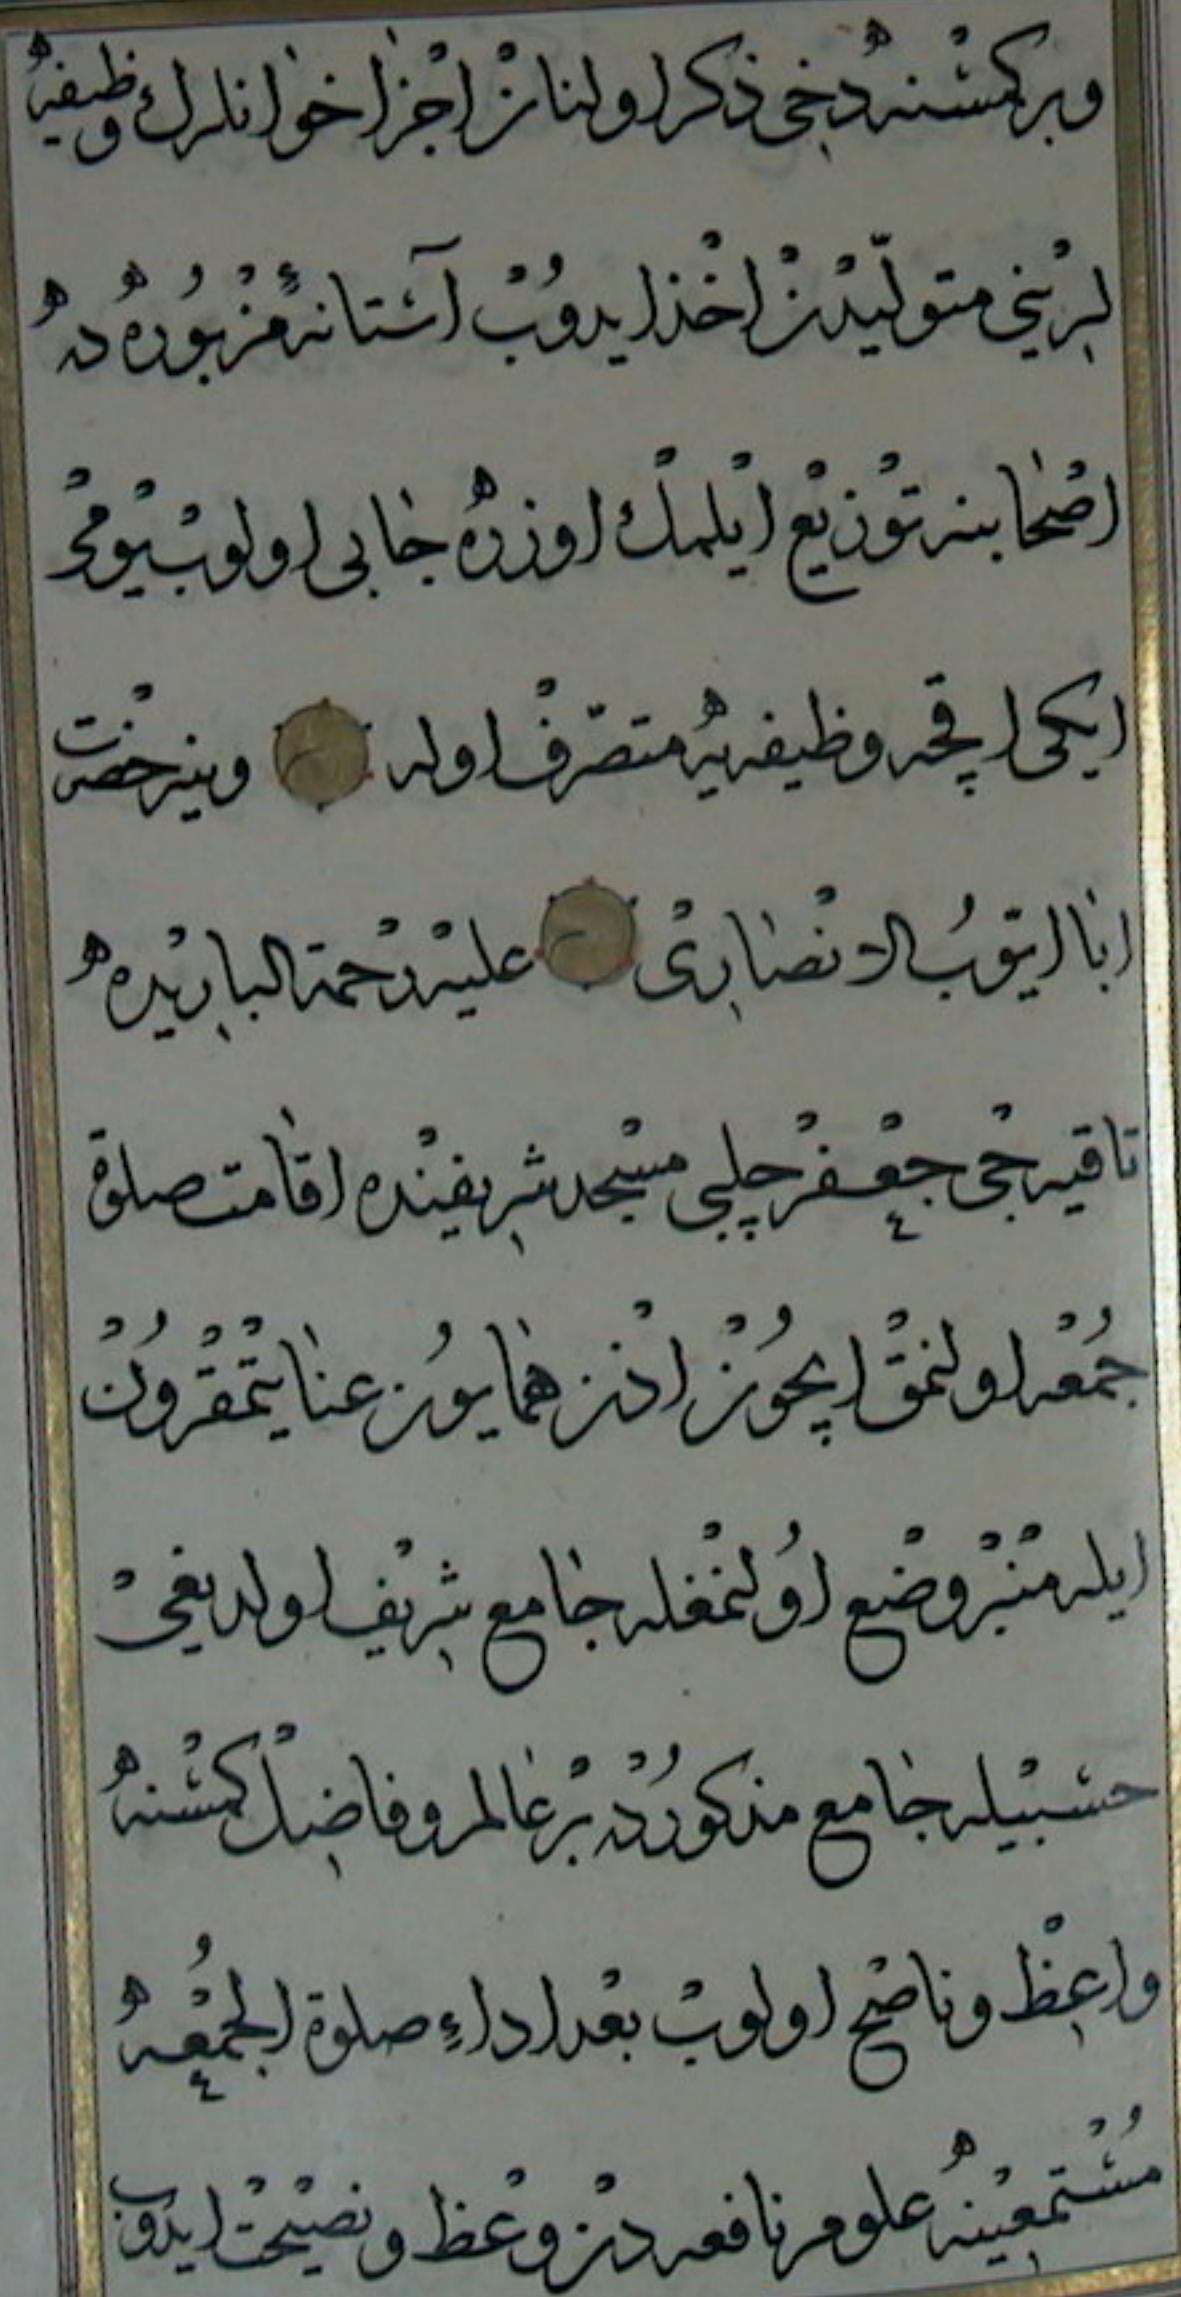 وبر كمسنه دخی ذكر اولنان اجزا خوانلرك وظیفه
لرینی متولیدن اخذ ایدوب آستانهٔ مزبوره ده
اصحابنه توزیع ایلمك اوزره جابی اولوب یومی
ایكی اقچه وظیفه یه متصرف اوله وینه حضرت
ابا ایوب الانصاری علیه رحمة الباریده
تاقیه جی جعفر چلبی مسجد شریفنده اقامت صلوة
جمعه اولنمق ایچون اذن همایون عنایتمقرون
ایله منبر وضع اولنمغله جامع شریف اولدیغی
حسبیله جامع مذكورده بر عالم و فاضل كمسنه
واعظ و ناصح اولوب بعد اداء صلوة الجمعه
مستمعینه علوم نافعه دن وعظ و نصیحت ایدوب